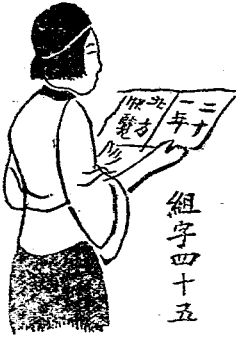 二十
一年
北方
快覽
組字四十五